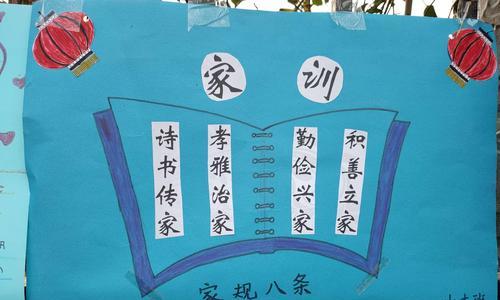 家训
诗书传家
孝雅治家
勤俭兴家
积善立家
家规八条